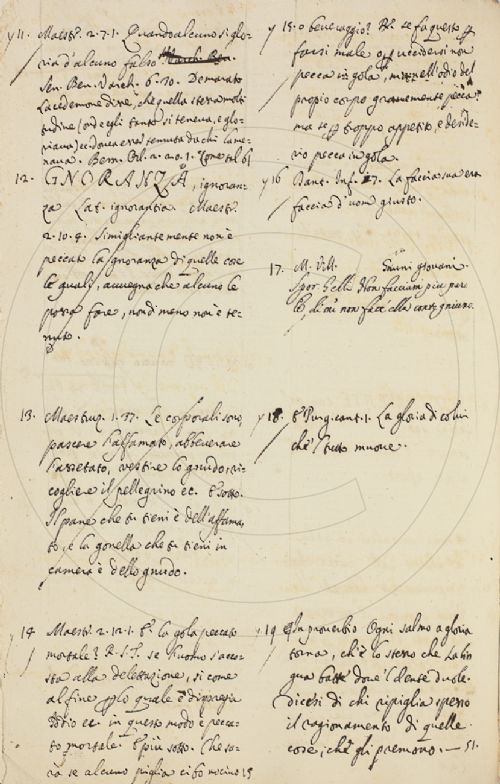 11. Maestr. 2.7.1. Quando alcuno si glo-
ria d'alcuno falso
Sen. Ben. Varch. 6.30. Demarato
Lacedemone disse, che quella stessa molti
tudine
riava)
nava. Bern. Orl. 2.20.1.
12. GNORANZA, ignoran-
za Lat. ignorantia. Maestr.
2.10.4. Simigliantemente non è
peccato la ignoranza di quelle cose
le quali, avvegna che alcuno le
possa fare, nondimeno non è te-
nuto.
13. Maestruz. 1.37. Le corporali sono
pascere l'affamato, abbeverare
l'assetato, vestire lo gnudo, ri-
cogliere il pellegrino ec. E sotto.
Il pane che tu tieni è dell'affama
to, e la gonella che tu tieni in
camera è dello gnudo.
14 Maestr. 2.12.1. E la gola peccato
mortale? R. S. T. se l'uomo s'acco-
sta alla delettazione, sì come
al fine per lo quale e' dispregia
Iddio ec. in questo modo è pecca-
to mortale. E più sotto. Che sa-
rà se alcuno piglia cibo nocivo 15
15. o beveraggio? R. se fa questo per
farsi male o per uccidersi non
pecca in gola, ma nell'odio del
proprio corpo gravemente pecca:
ma se per troppo appetito, e deside-
rio pecca in gola.
16 Dant. Inf. 17. La faccia sua era
faccia d'uom giusto.
17. M. V.
Spor. Gell. Non facciam più par
18. E Purg. cant. 1. La gloria di colui
che 'l tutto muove.
19 In proverbio Ogni salmo a gloria
torna, ch'è lo stesso che La lin
gua batte dove 'l dente duole.
Dicesi di chi ripiglia spesso
il ragionamento di quelle
cose, che gli premono. — 51.